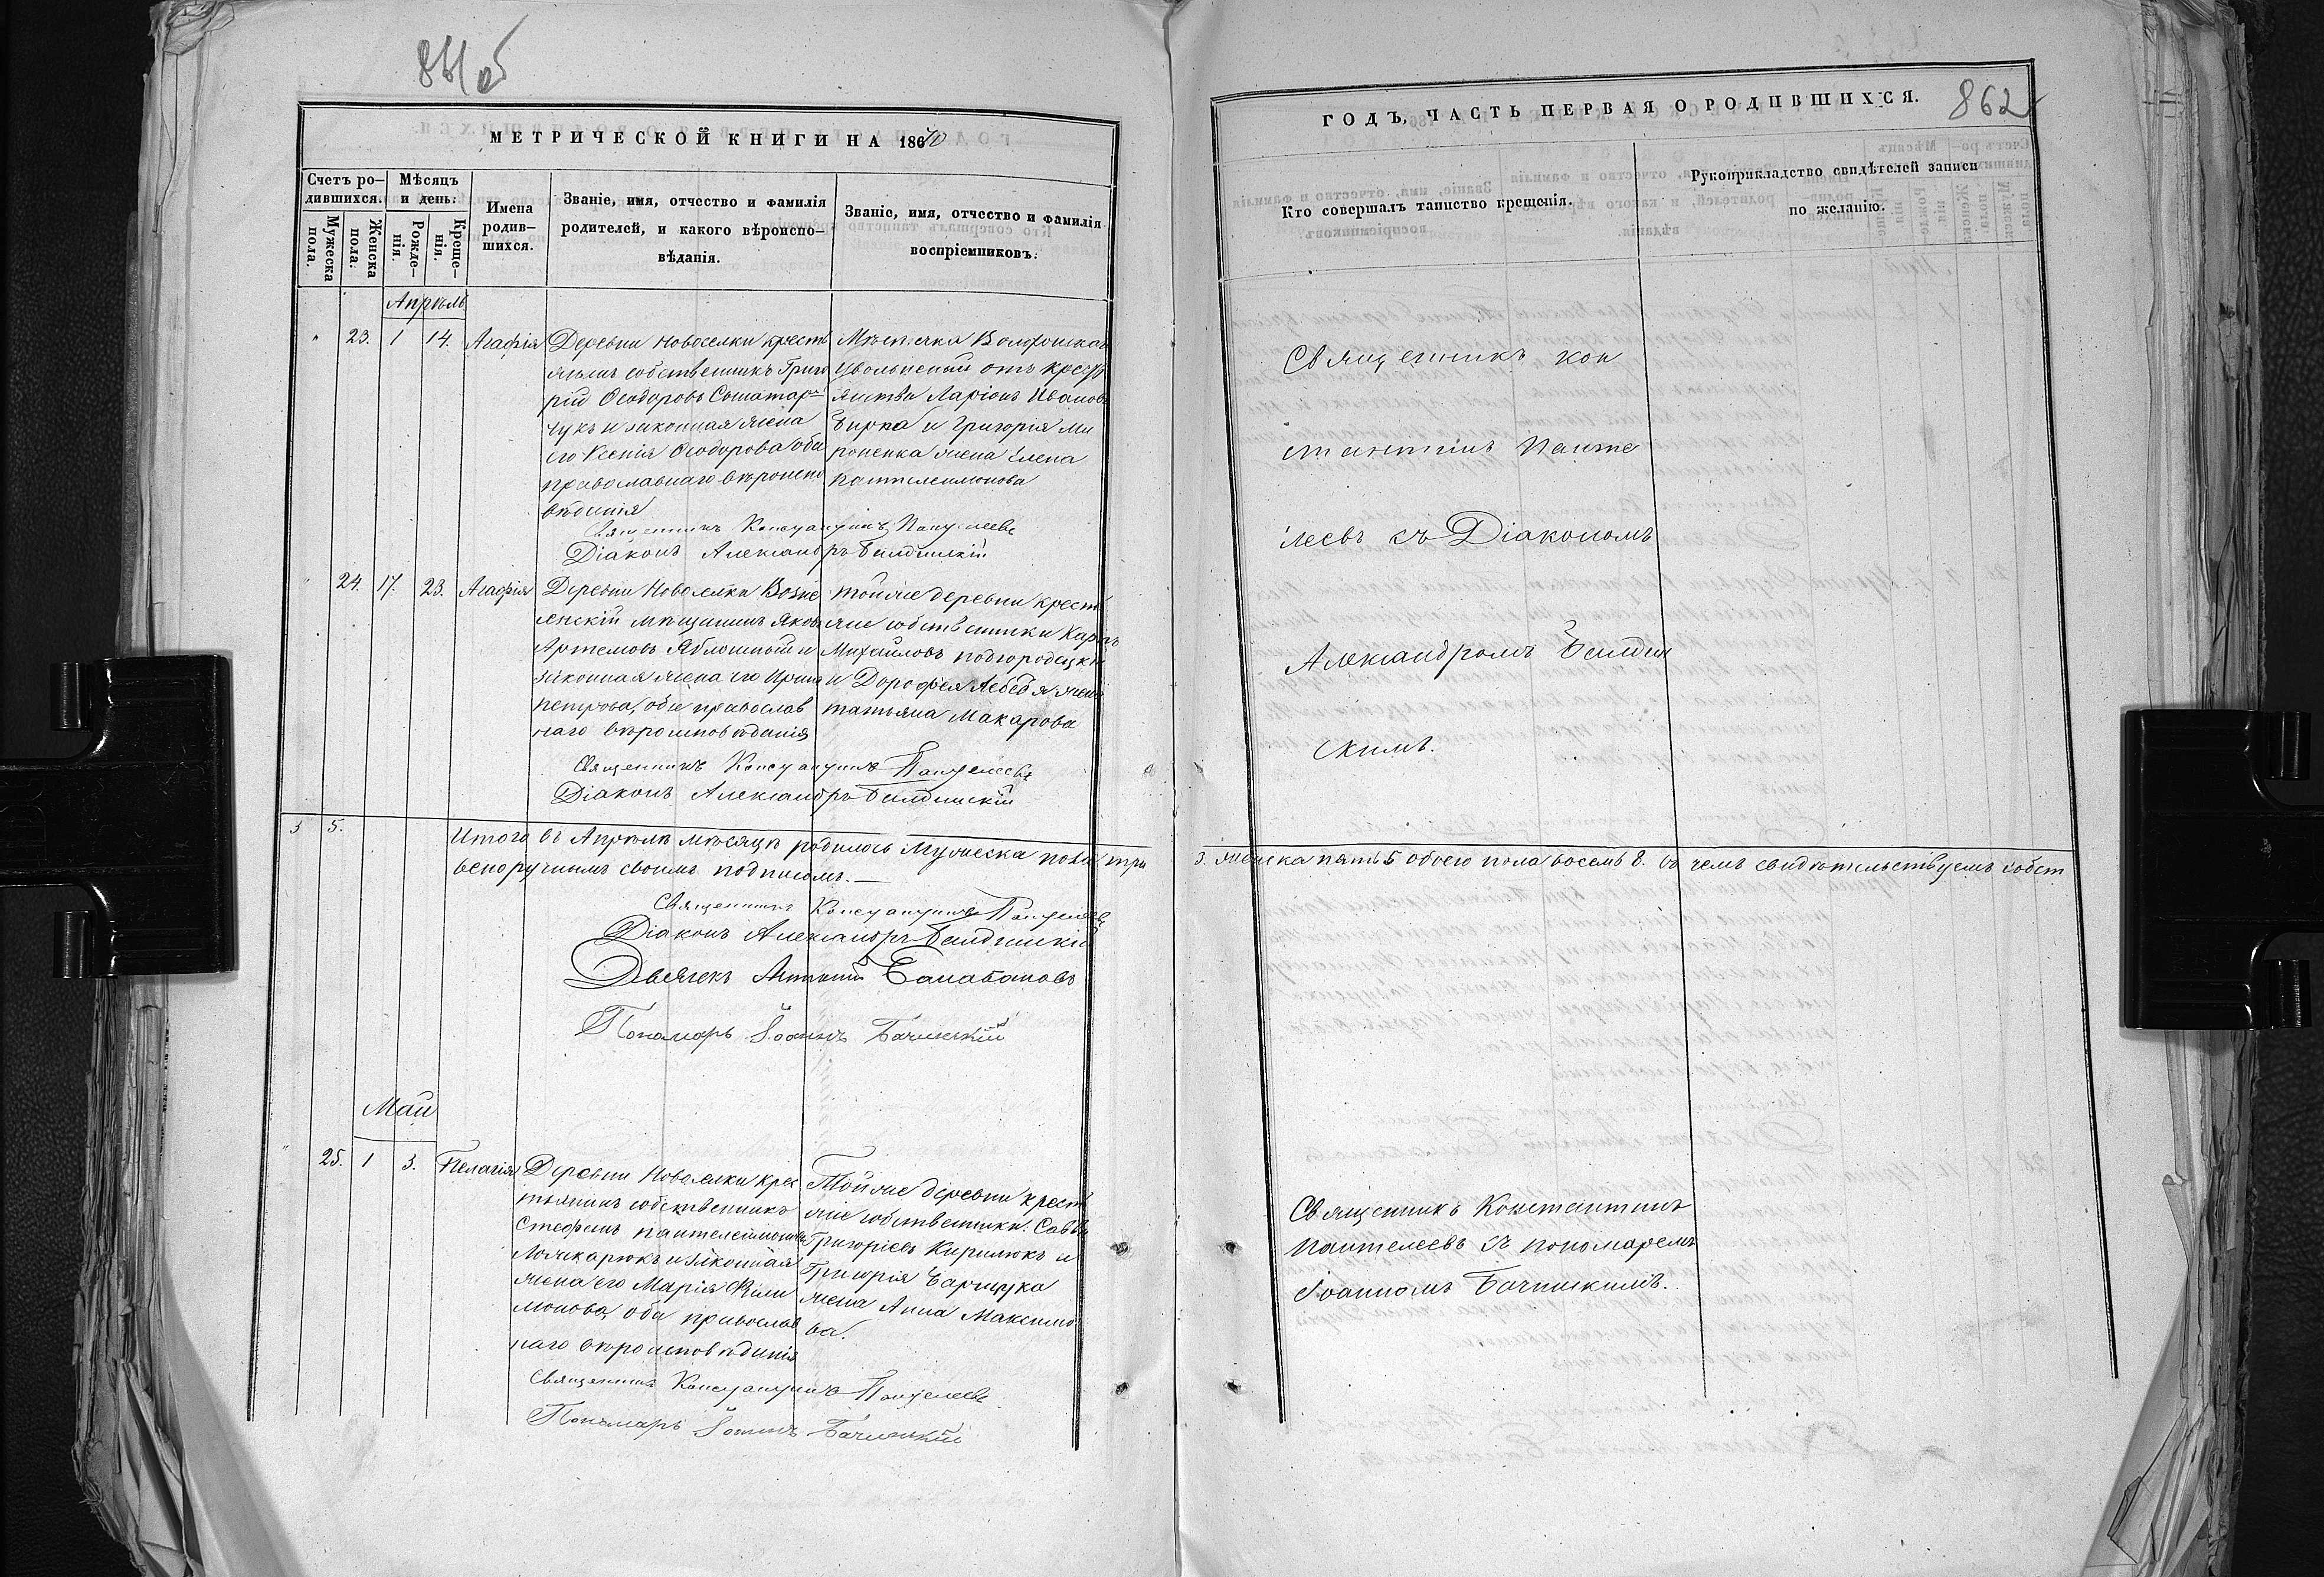 МЕТРИЧЕСКОЙ КНИГИ НА 1870
Счетъ ро-
дившихся.
Мужеска
пола.
Женска
пола.
Мѣсяцъ
и день:
Рожде-
нія.
Креще-
нія.
Имена
родив-
шихся.
Званіе, имя, отчество и фамилія
родителей, и какого вѣроиспо-
вѣданія.
Званіе, имя, отчество и фамилія
воспріемниковъ.
Апрѣль
23. 1 14. Агафія
Деревни Новоселки кресть
янинъ собственникъ Григо
рій Ѳеодоровъ
чукъ и законная жена
его Ксенія Ѳеодорова оба
православнаго вѣроиспо
вѣданія
Мѣстечка
уволъненый отъ крест
янства Ларіонъ Ивановъ
Бирка и Григорія Ми
роненка жена Елена
пантелеимонова
Священникъ Константинъ Пантелеевъ
Діаконъ Александръ
24. 17. 23. Агафія
Деревни Новоселки Возне
сенскій мѣщанинъ Яковъ
Артемовъ Яблошный и
законная жена его Ирина
петрова, оба православ
наго вѣроисповѣданія
тойже деревни кресть
яне собственники Карпъ
Михайловъ подгородецкій
и Дорофея Лебедя жена
татьяна Макарова
Священникъ Константинъ Пантелеевъ
Діаконъ Александръ
3 5.
Итого въ Апрѣлѣ мѣсяцѣ родилось Мужеска пола три
веноручнымъ своимъ подписомъ.—
Священникъ Константинъ Пантелеевъ
Діаконъ Александръ
Дьячекъ Антоній Балабановъ
Пономарь Іоаннъ Бачинскій
Май
25. 1 3. Пелагія
Деревни Новоселки крес
тьянинъ собственникъ
Стефанъ пантелеимоновъ
и законная
жена его Марія Фили
монова, оба православ
наго вѣроисповѣданія
Тойже деревни кресть
яне собственники: Савва
Григоріевъ Кирилюкъ и
Григорія
жена Анна Максимо
ва.
Священникъ Константинъ Пантелеевъ
Пономарь Іоаннъ Бачинскій
ГОДЪ, ЧАСТЬ ПЕРВАЯ О РОДИВШИХСЯ.
862
Кто совершалъ таинство крещенія.
Рукоприкладство свидѣтелей записи
по желанію.
Священникъ кон
стантинъ Панте
леевъ съ Діакономъ
Александромъ
скимъ.
3. женска пять 5 обоего пола восемь 8. въ чемъ свидѣтельствуемъ собст
Священникъ Константинъ
Пантелеевъ съ пономаремъ
Іоанномъ Бачинскимъ.